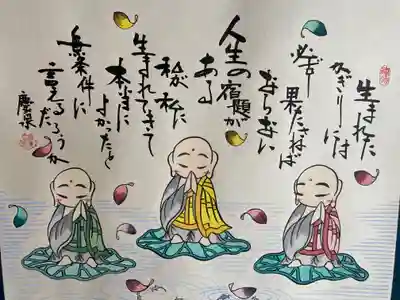 生まれた
かぎりには
必ず果たさねば
ならない
人生の宿題が
ある
私が私に
生まれてきて
本当に
よかったと
無条件に
言えるだろうか